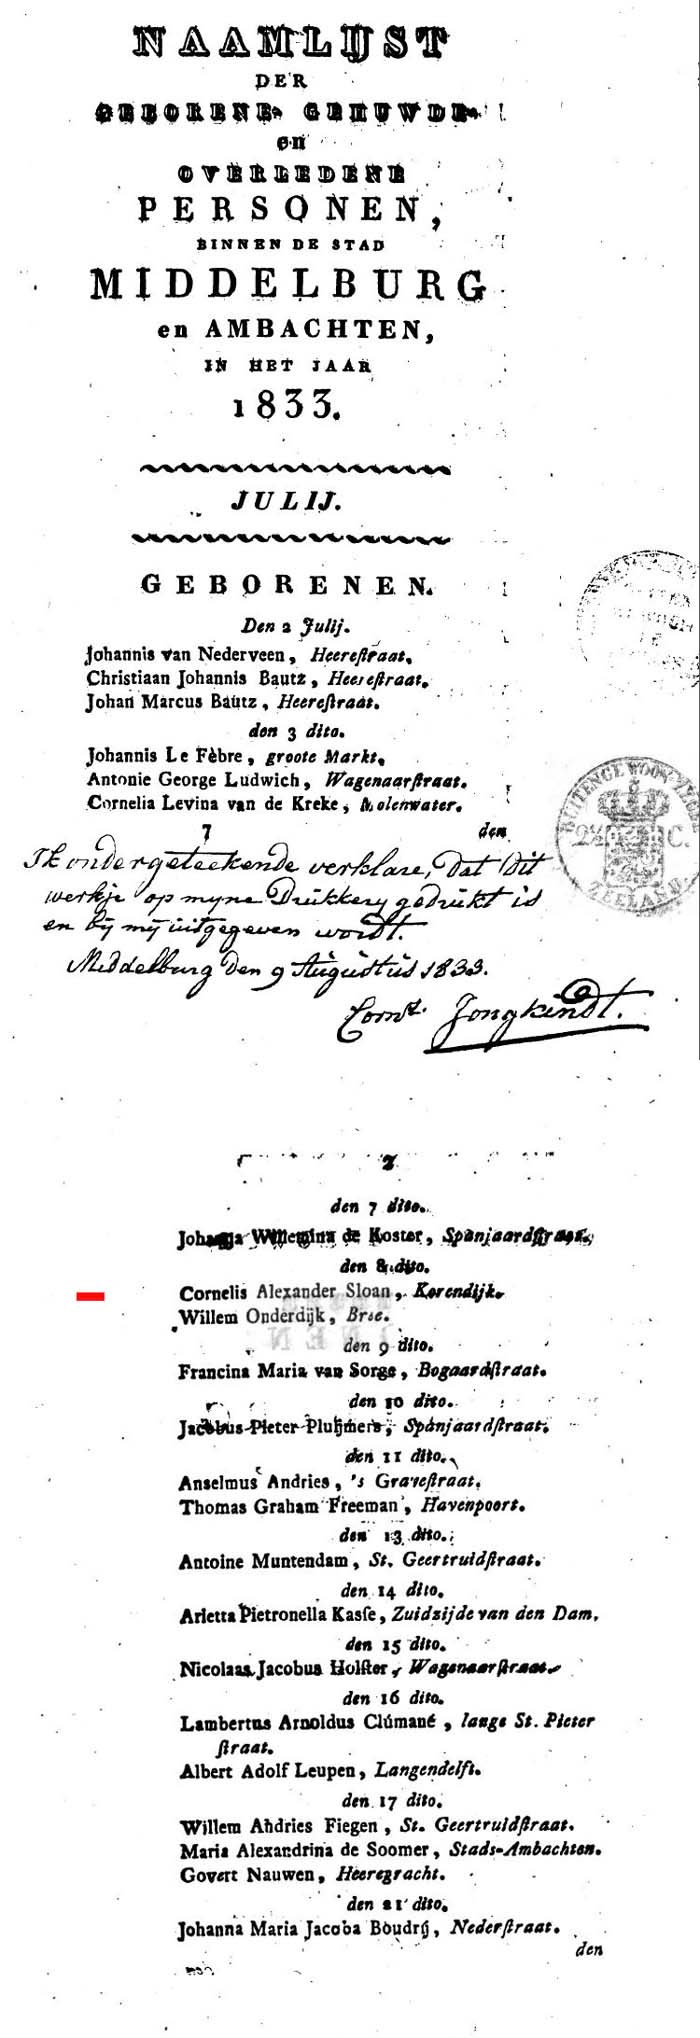 NAAMLIJST
DER
GEBORENE- GEHUWDE-
en
OVERLEDENE
PERSONEN,
BINNEN DE STAD
MIDDELBURG
en AMBACHTEN,
IN HET JAAR
1833.
JULIJ.
GEBORENEN.
Den 2 Julij.
Johannis van Nederveen, Heereſtraat.
Christiaan Johannis Bautz, Heereſtraat.
Johan Marcus Bautz, Heereſtraat.
den 3 dito.
Johannis Le Fèbre, groote Markt.
Antonie George Ludwich, Wagenaarſtraat.
Cornelia Levina van de Kreke, Molenwater.
7 den
BUITENGEWOON ZEGEL
2½ C.
ZEELAND
Ik ondergeteekende verklare, dat dit
werkje op myne Drukkery gedrukt is
en bij mij uitgegeven wordt.
Middelburg den 9 Augustus 1833.
Corns. Jongkindt.
2
den 7 dito.
Johanna Willemina de Koster, Spanjaardſtraat.
den 8 dito.
Cornelis Alexander Sloan, Korendijk.
Willem Onderdijk, Bree.
den 9 dito.
Francina Maria van Sorge, Bogaardſtraat.
den 10 dito.
Jacobus Pieter Pluijmers, Spanjaardſtraat.
den 11 dito.
Anselmus Andries, 's Graveſtraat.
Thomas Graham Freeman, Havenpoort.
den 13 dito.
Antoine Muntendam, St. Geertruidſtraat.
den 14 dito.
Arietta Pietronella Kasſe, Zuidzijde van den Dam.
den 15 dito.
Nicolaas Jacobus Holſter, Wagenaarſtraat.
den 16 dito.
Lambertus Arnoldus Clúmané, lange St. Pieter
ſtraat.
Albert Adolf Leupen, Langendelft.
den 17 dito.
Willem Andries Fiegen, St. Geertruidſtraat.
Maria Alexandrina de Soomer, Stads-Ambachten.
Govert Nauwen, Heeregracht.
den 21 dito.
Johanna Maria Jacoba Boudrij, Nederſtraat.
den